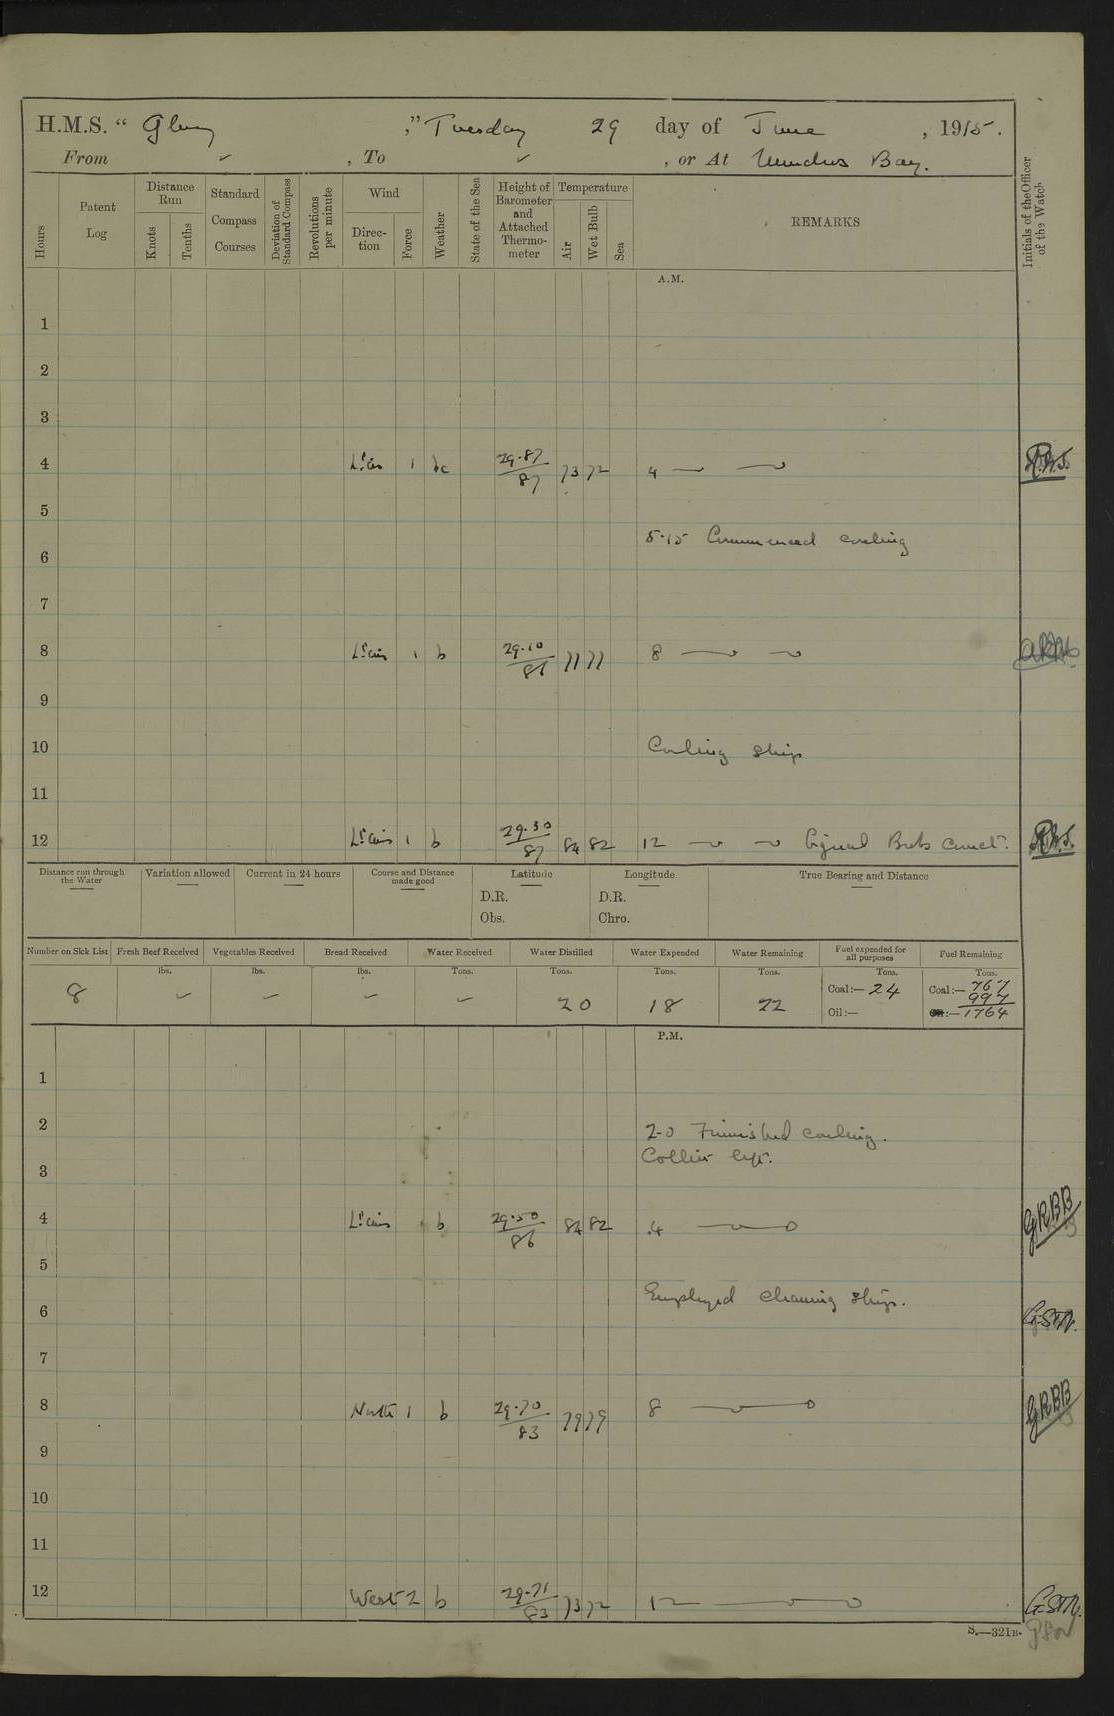 H.M.S. “ Glory ,” Tuesday 29 day of June , 1915.
From ✓ , To ✓ , or At Mudros Bay.
Hours
Patent Log
Distance Run
Knots
Tenths
Standard Compass Courses
Deviation of Standard Compass
Revolutions per minute
Wind
Direction
Force
Weather
State of the Sea
Height of Barometer and Attached Thermometer
Temperature
Air
Wet Bulb
Sea
REMARKS
Initials of the Officer of the Watch
A.M.
1
2
3
4 Lt airs 1 bc 29.87 87 73 72 4
5
5.15 Commenced coaling
6
7
8 Lt airs 1 b 29.10 86 77 77 8
9
10 Coaling ship
11
12 Lt airs 1 b 29.30 87 84 82 12 Signal Books correct.
Distance run through the Water
Variation allowed
Current in 24 hours
Course and Distance made good
Latitude
Longitude
True Bearing and Distance
D.R. D.R.
Obs. Chro.
Number on Sick List
Fresh Beef Received
Vegetables Received
Bread Received
Water Received
Water Distilled
Water Expended
Water Remaining
Fuel expended for all purposes
Fuel Remaining
lbs. lbs. lbs. Tons. Tons. Tons. Tons. Tons. Tons.
8 – – – – 20 18 22 Coal:— 24 Coal:— 767
997
Oil:— 1764
P.M.
1
2 2-0 Finished coaling.
Collier left.
3
4 Lt airs 1 b 29.50 86 84 82 4 GRBB
5
Employed cleaning ship.
6 GSTN.
7
8 North 1 b 29.70 83 79 79 8 GRBB
9
10
11
12 West 2 b 29.71 83 73 72 12 GSTN.
S.—321B.